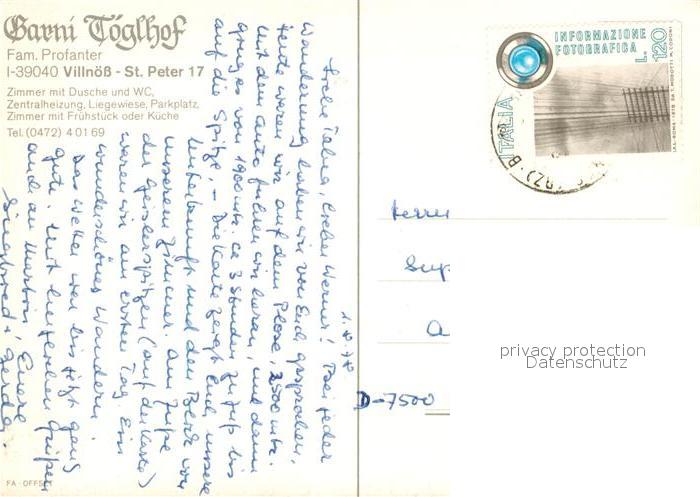 Garni Töglhof
Fam. Profanter
I-39040 Villnöß - St. Peter 17
Zimmer mit Dusche und WC,
Zentralheizung, Liegewiese, Parkplatz,
Zimmer mit Frühstück oder Küche
Tel. (0472) 4 01 69
Liebe lieber Werner! Bei jeder
Wanderung haben wir von Euch gesprochen.
Heute waren wir auf dem Plose, 2500 mtr.
Mit dem Auto fuhren wir hoch, und dann
ging es von 1900 mtr. ca 3 Stunden zu Fuß bis
auf die Spitze. - Die Karte zeigt Euch unsere
Unterkunft und den Blick von
unserem Zimmer. Am Fuße
der Geislerspitzen (auf der Karte)
waren wir am ersten Tag. Ein
wunderschönes Wandern.
Das Wetter war bis jetzt ganz
gut. Mit herzlichen Grüßen
auch an Eure
Siegfried u. Gerda.
INFORMAZIONE
FOTOGRAFICA
L. 120
ITALIA
Herrn
Sup
D-7500
privacy protection
Datenschutz
FA - OFFSET